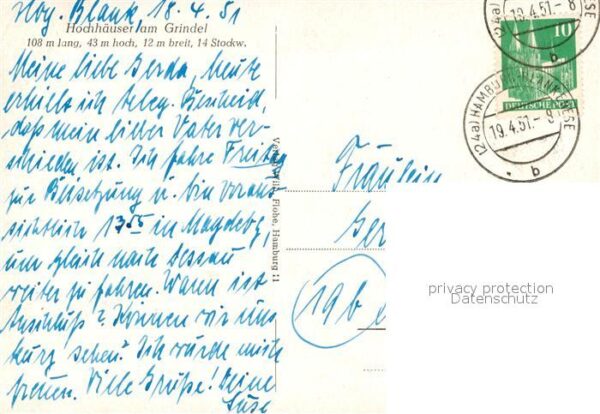 Hbg. Blank, 18.4.51
Hochhäuser am Grindel
108 m lang, 43 m hoch, 12 m breit, 14 Stockw.
Meine liebe Gerda, heute
erhielt ich teleg. Bescheid,
daß mein lieber Vater ver-
schieden ist. Ich fahre Freitag
zur Beisetzung u. bin voraus-
sichtlich 13⁵⁵ in Magdebg,
um gleich nach Dessau
weiter zu fahren. Wann ist
Anschluß? Können wir uns
kurz sehen? Ich würde mich
freuen. Viele Grüße! Deine
Luse
Fräulein
Ger
(19b)
Hamburg 11
19.4.51.-8
b
10
DEUTSCHE POST
(24a) HAMBURG-BLANKENESE
19.4.51.-8
b
privacy protection
Datenschutz